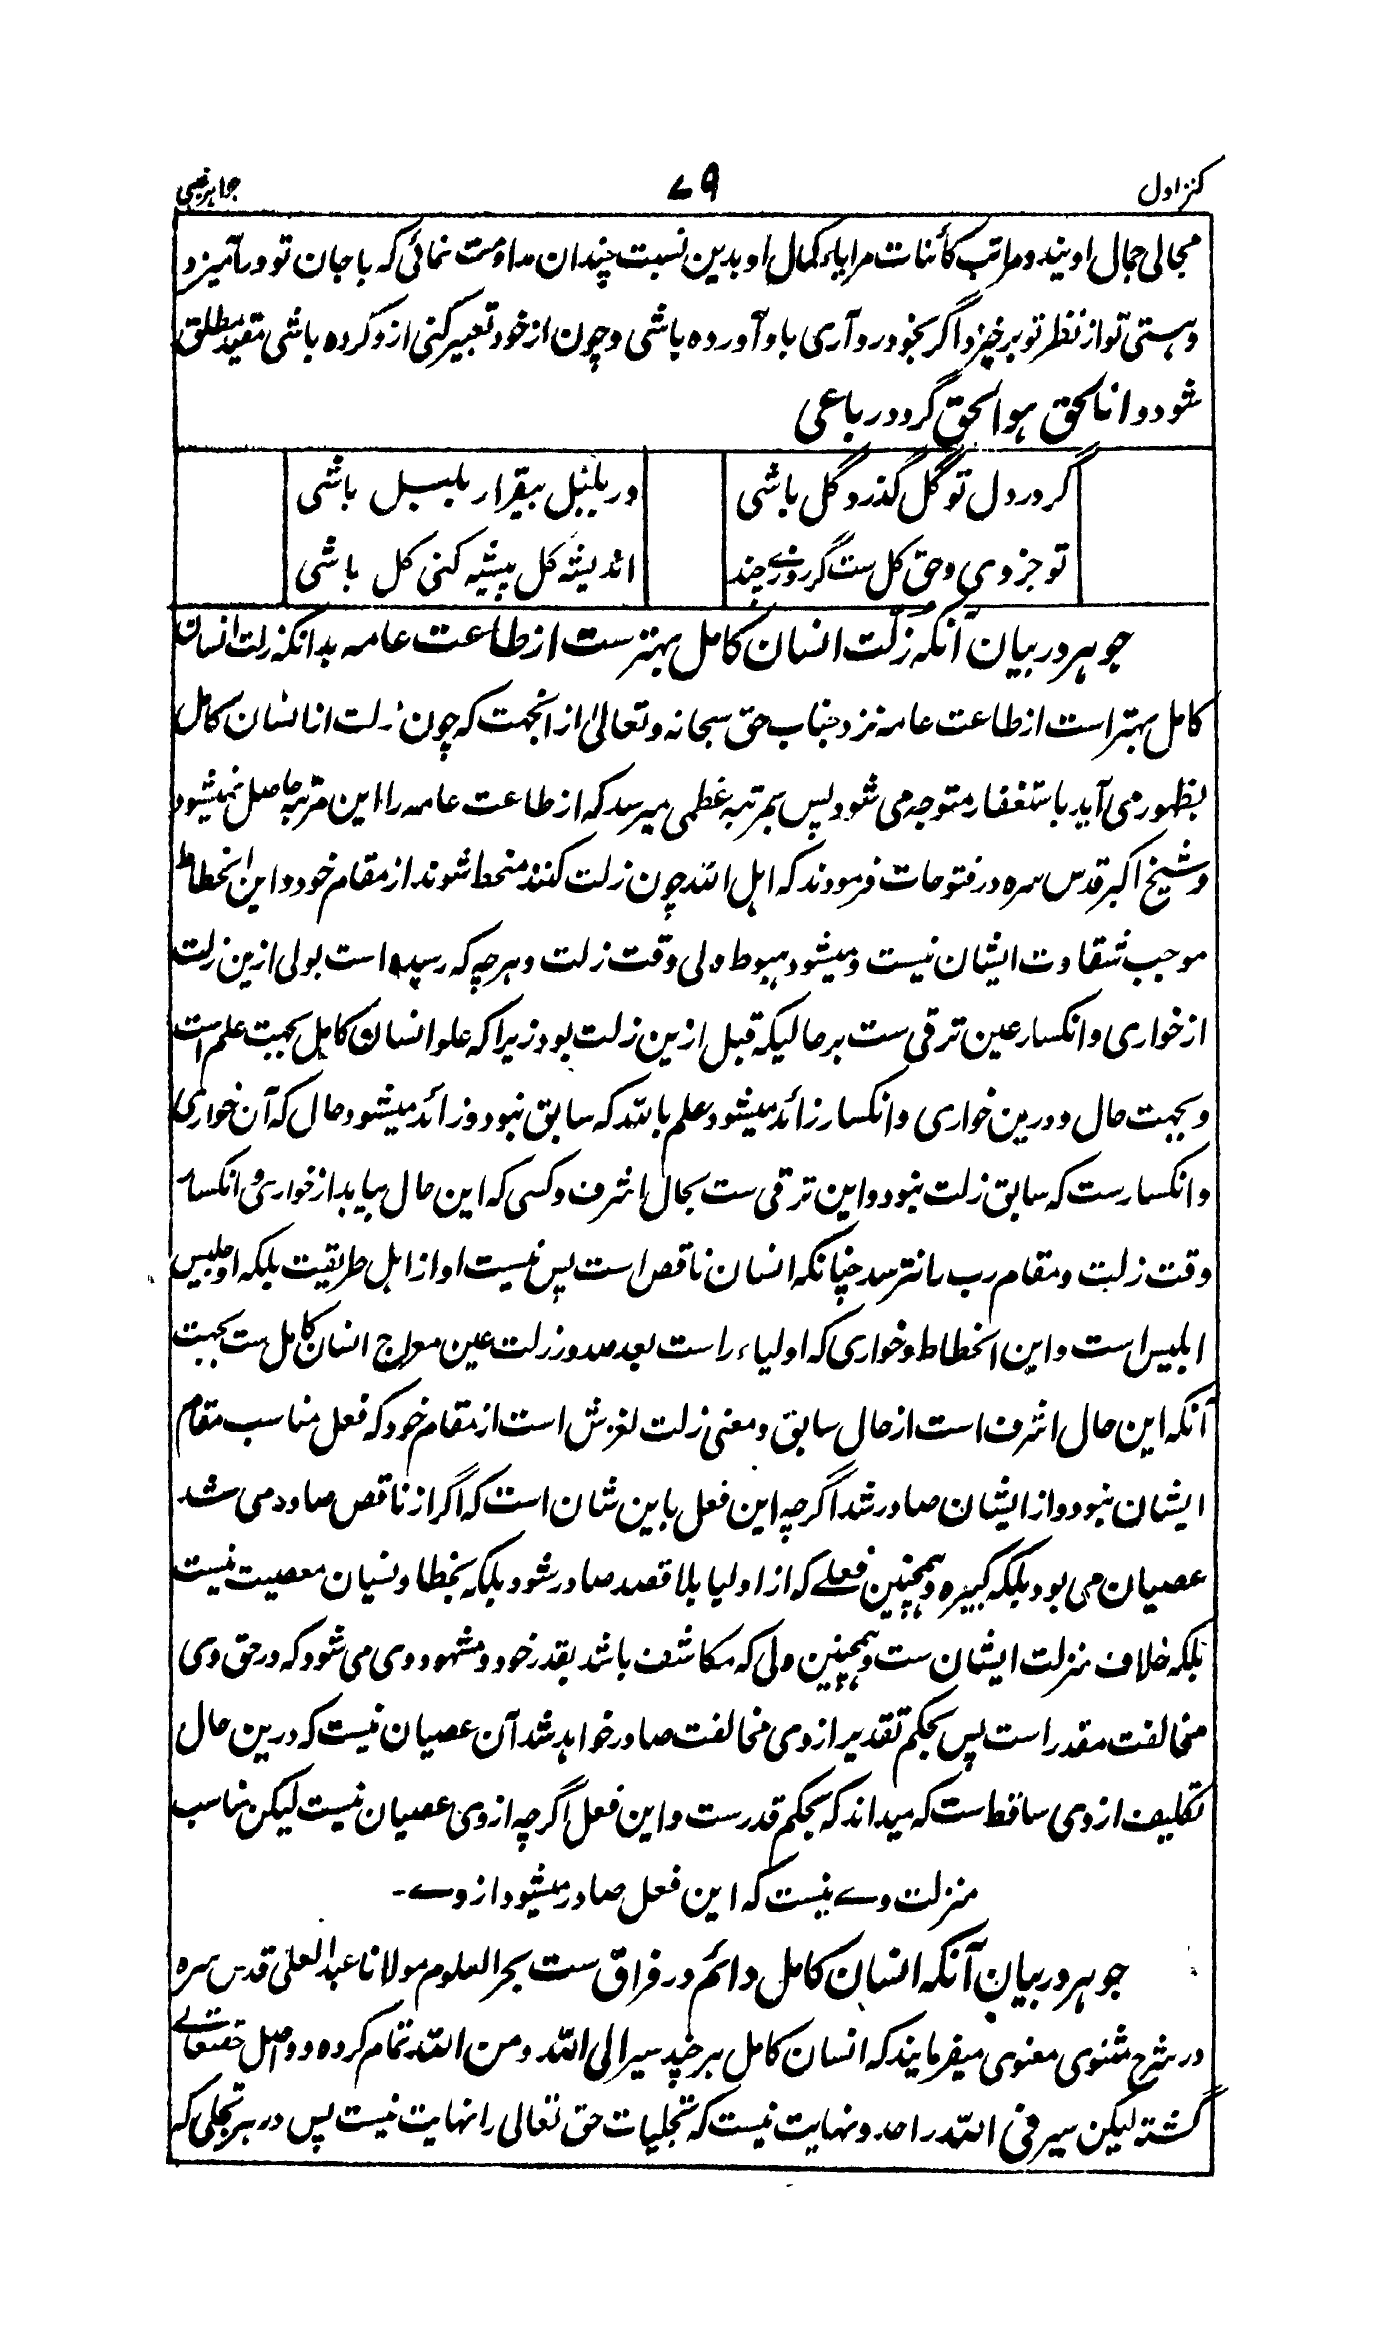 کنز اول
۷۹
جواہر غیبی
مجالی جمال اویند و مراتب کائنات مرایاء کمال او بدین نسبت چندان مداومت نمائی کہ با جان تو در آمیزد
و ہستی تو از نظر تو برخیزد اگر بخود رو آری باو آوردہ باشی و چون از خود تعبیر کنی ازو کردہ باشی مقید مطلق
شود و انا الحق ہو الحق گردد رباعی
گر در دل تو گل گذرد گل باشی
ور بلبل بیقرار بلبل باشی
تو جزوی و حق کل ست گر روزے چند
اندیشہ کل پیشہ کنی کل باشی
جوہر در بیان آنکہ زلت انسان کامل بہترست از طاعت عامہ بدانکہ زلت انسان
کامل بہتر است از طاعت عامہ نزد جناب حق سبحانہ و تعالیٰ از انجہت کہ چون زلت از انسان کامل
بظہور می آید باستغفار متوجہ می شود پس بمرتبہ عظمی میرسد کہ از طاعت عامہ را این مرتبہ حاصل نمیشود
و شیخ اکبر قدس سرہ در فتوحات فرمودند کہ اہل اللہ چون زلت کنند منحط شوند از مقام خود و این انحطاط
موجب شقاوت ایشان نیست و میشود ہبوط ولی وقت زلت و ہرچہ کہ رسیدہ است بولی ازین زلت
از خواری و انکسار عین ترقی ست بر حالیکہ قبل ازین زلت بود زیرا کہ علو انسان کامل بجہت علم است
و بجہت حال و درین خواری و انکسار زائد میشود علم باللہ کہ سابق نبود و زائد میشود حال کہ آن خواری
و انکسارست کہ سابق زلت نبود و این ترقی ست بحال اشرف و کسی کہ این حال بیابد از خواری و انکسار
وقت زلت و مقام رب را نترسد چنانکہ انسان ناقص است پس نیست او از اہل طریقت بلکہ او جلیس
ابلیس است و این انحطاط و خواری کہ اولیاء راست بعد صدور زلت عین معراج انسان کامل ست بجہت
آنکہ این حال اشرف است از حال سابق و معنی زلت لغزش است از مقام خود کہ فعل مناسب مقام
ایشان نبود و از ایشان صادر شد اگرچہ این فعل باین شان است کہ اگر از ناقص صادر می شد
عصیان می بود بلکہ کبیرہ و ہمچنین فعلے کہ از اولیا بلا قصد صادر شود بلکہ بخطا و نسیان معصیت نیست
بلکہ خلاف منزلت ایشان ست و ہمچنین ولی کہ مکاشف باشد بقدر خود و مشہود وی می شود کہ در حق وی
مخالفت مقدر است پس بحکم تقدیر از وی مخالفت صادر خواہد شد آن عصیان نیست کہ درین حال
تکلیف از وی ساقط ست کہ میداند کہ بحکم قدرست و این فعل اگرچہ از وی عصیان نیست لیکن مناسب
منزلت وے نیست کہ این فعل صادر میشود از وے۔
جوہر در بیان آنکہ انسان کامل دائم در فراق ست بحر العلوم مولانا عبد العلی قدس سرہ
در شرح مثنوی معنوی میفرمایند کہ انسان کامل ہرچند سیر الی اللہ و من اللہ تمام کردہ و واصل حقتعالے
گشتہ لیکن سیر فی اللہ را حد و نہایت نیست کہ تجلیات حق تعالی را نہایت نیست پس در ہر تجلی کہ